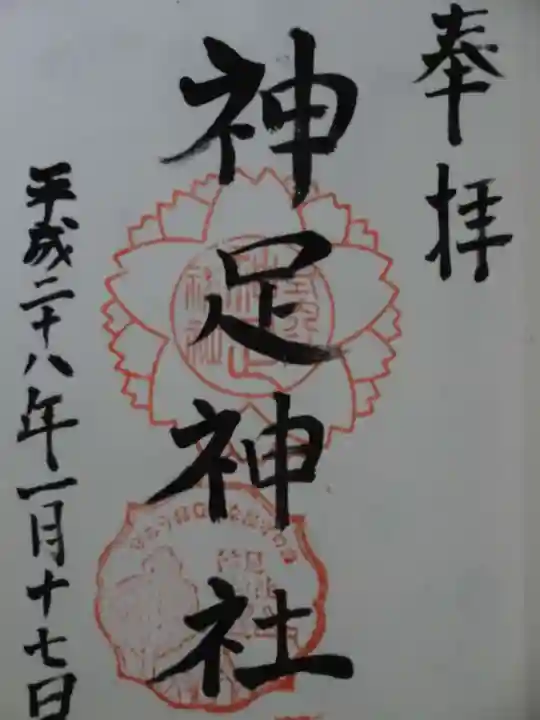 奉拝
神足神社
平成二十八年一月十七日